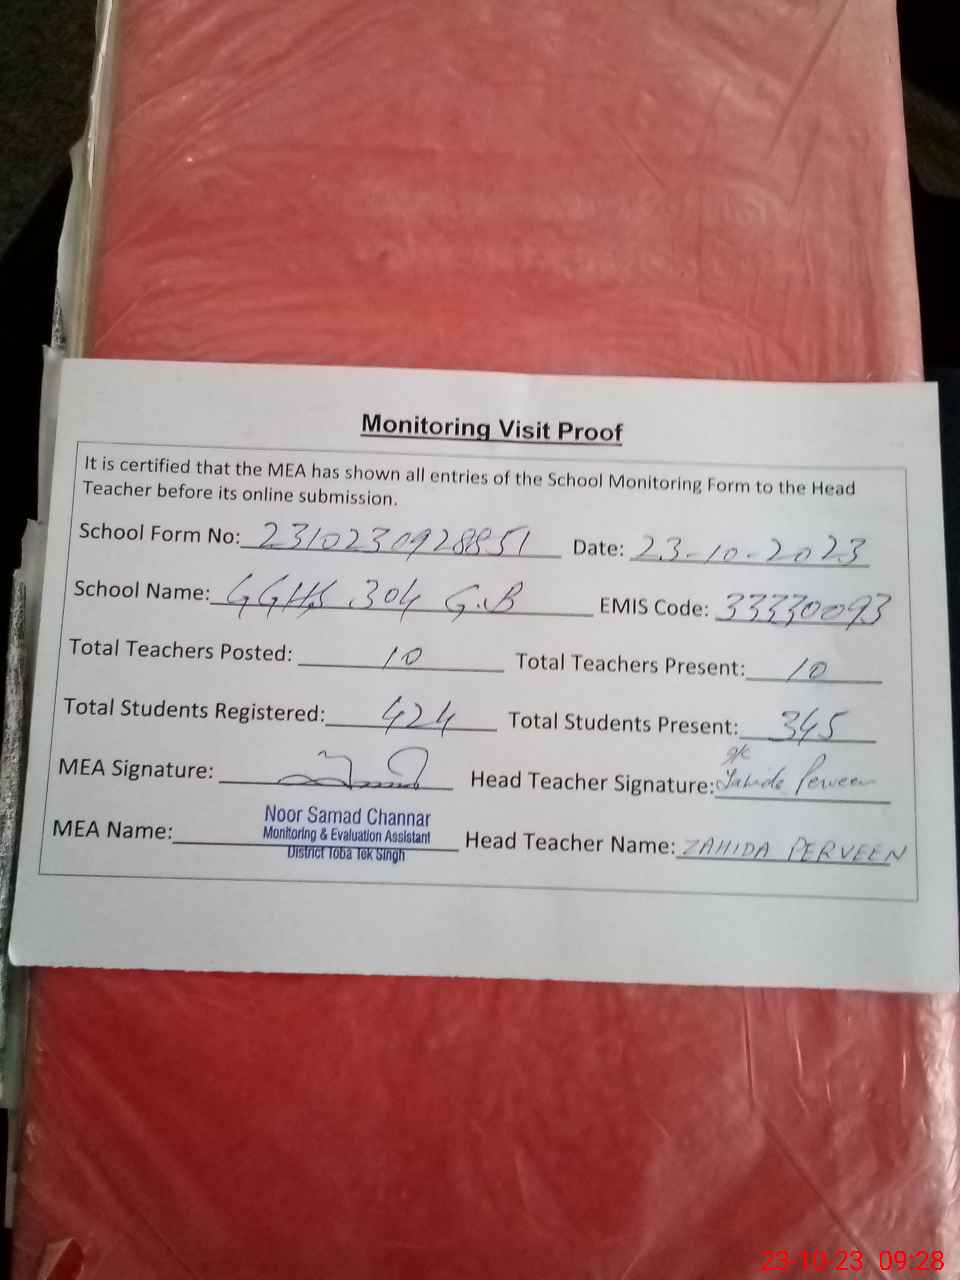 Monitoring Visit Proof
It is certified that the MEA has shown all entries of the School Monitoring Form to the Head
Teacher before its online submission.
School Form No: 2310230928851 Date: 23-10-2023
School Name: GGHS 304 G.B EMIS Code: 33330093
Total Teachers Posted: 10 Total Teachers Present: 10
Total Students Registered: 424 Total Students Present: 345
MEA Signature: Head Teacher Signature: Zahida Perveen
MEA Name: Noor Samad Channar Head Teacher Name: ZAHIDA PERVEEN
Monitoring & Evaluation Assistant
District Toba Tek Singh
23-10-23 09:28